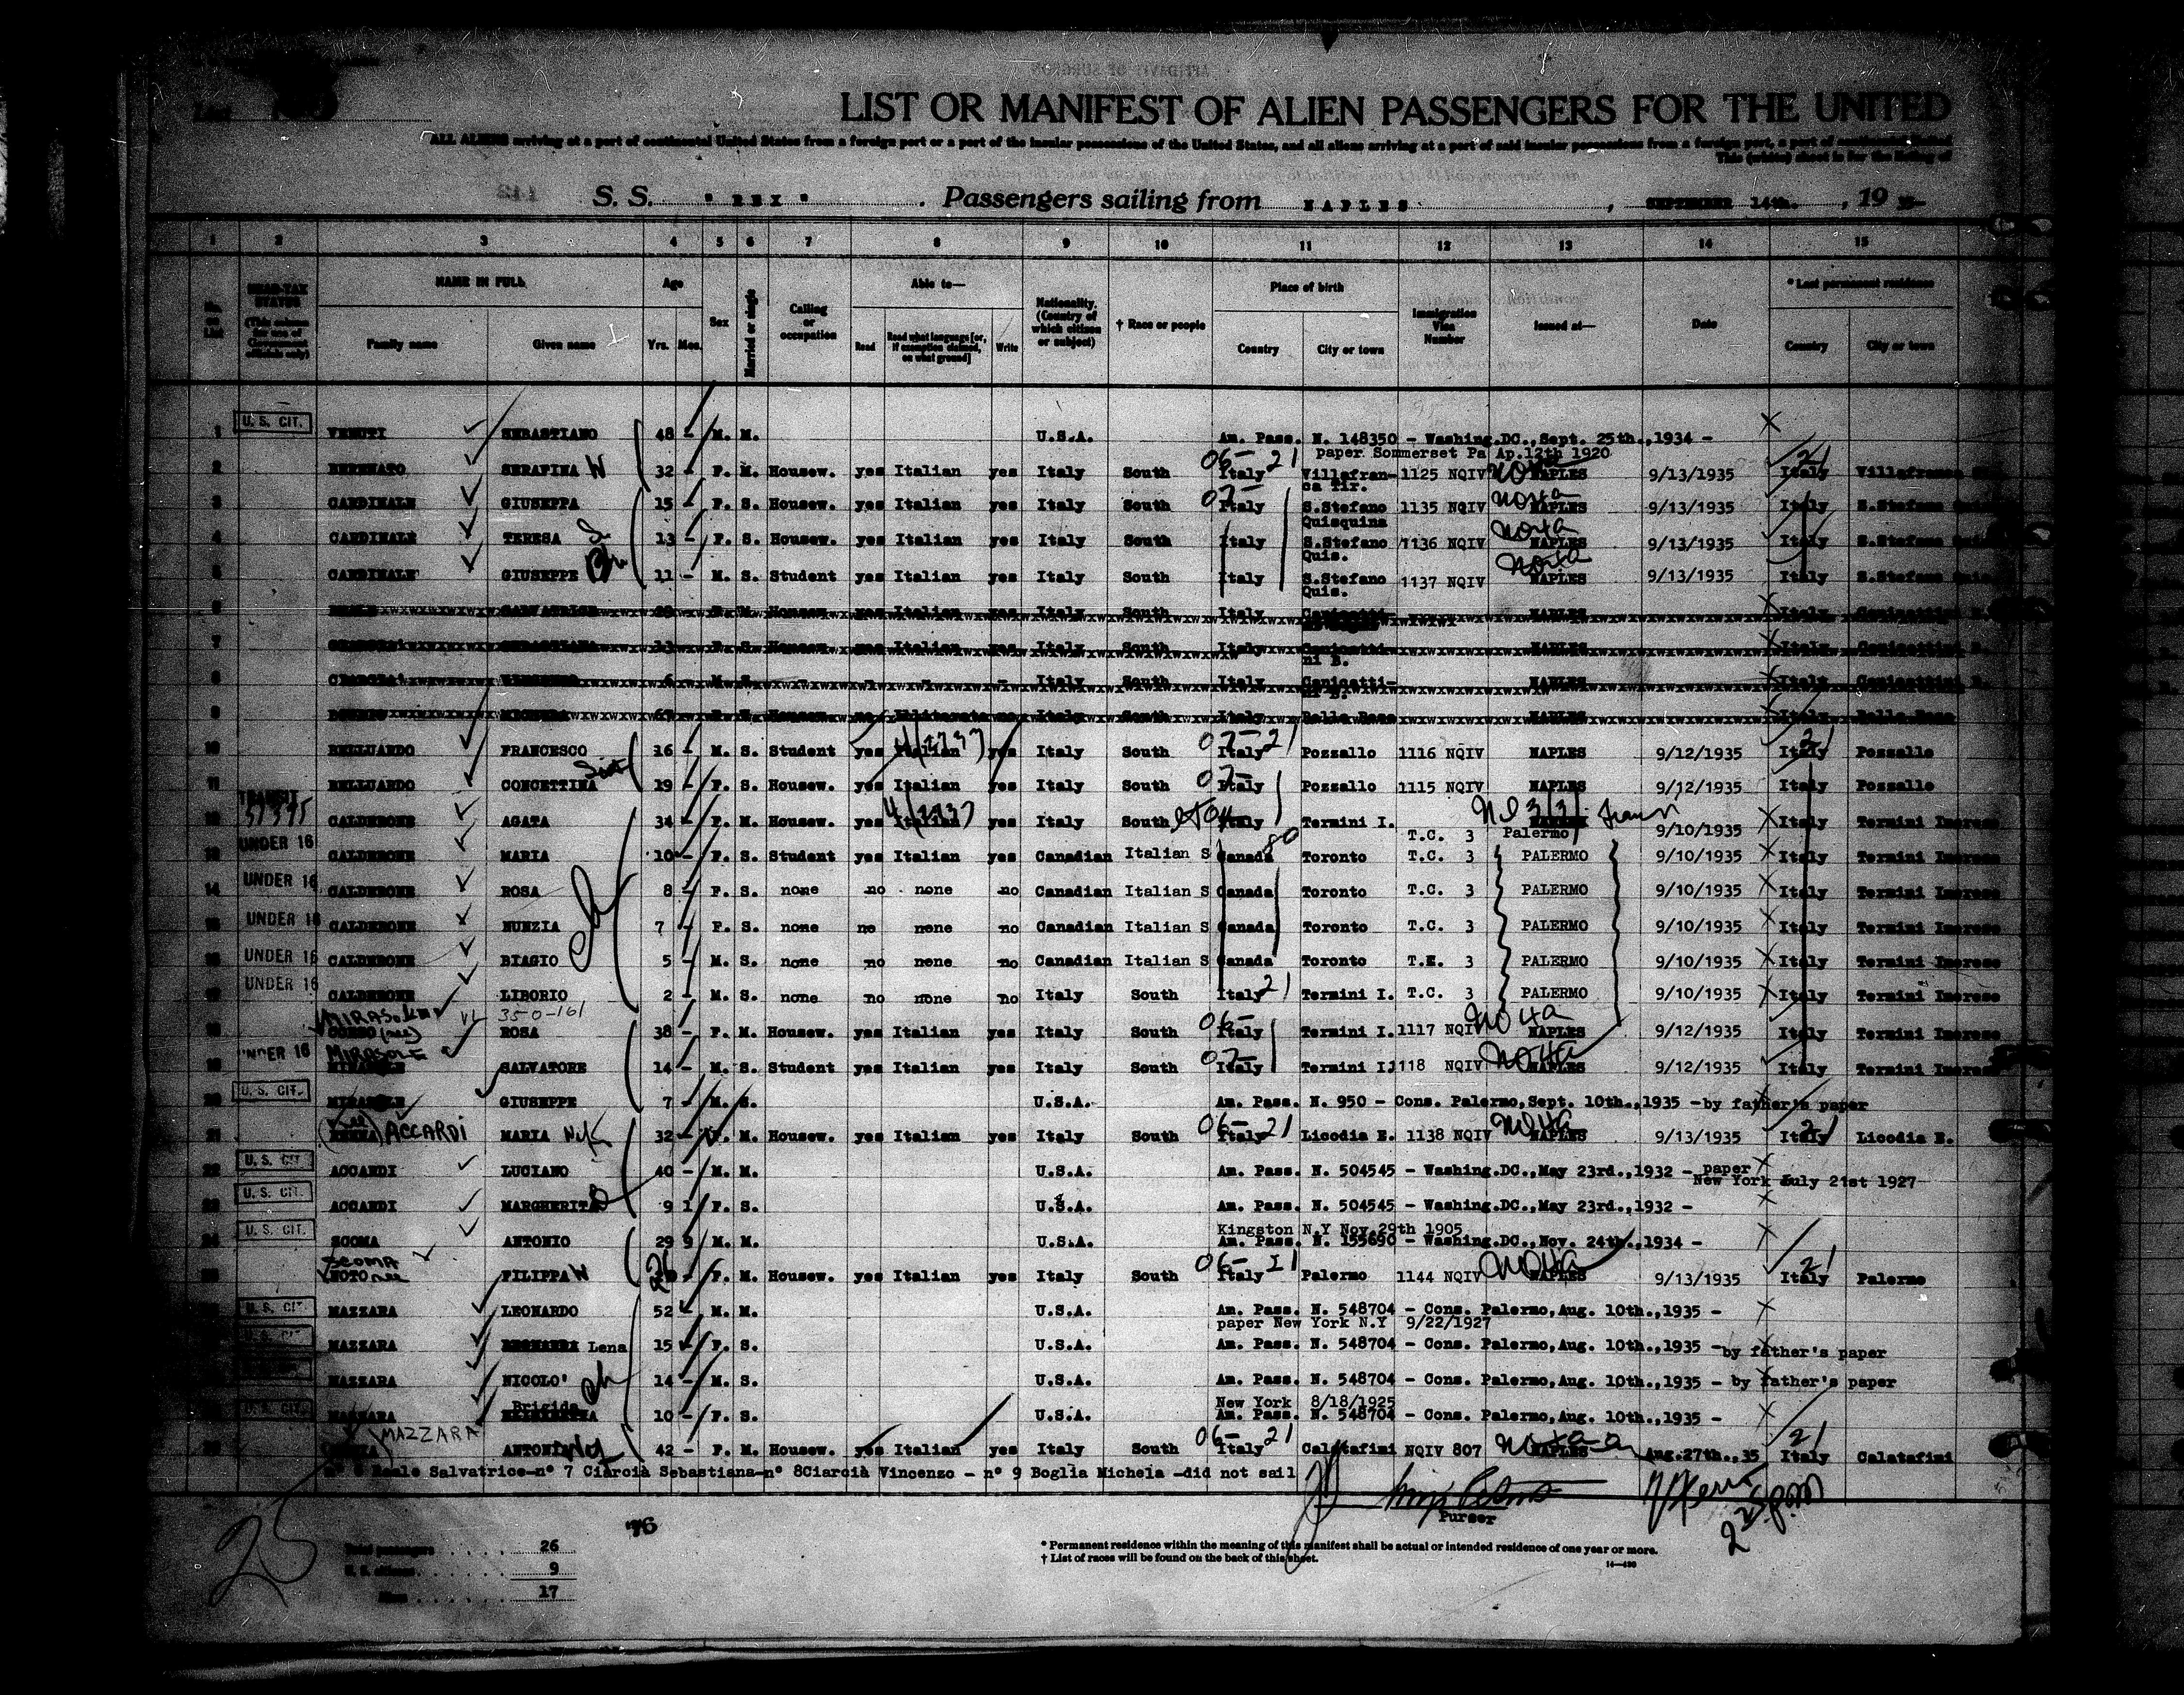 LIST OR MANIFEST OF ALIEN PASSENGERS FOR THE UNITED
ALL ALIENS arriving at a port of continental United States from a foreign port or a port of the insular possessions of the United States, and all aliens arriving at a port of said insular possessions from a foreign port, a port of continental United
This (white) sheet is for the listing of
S. S. "REX" Passengers sailing from NAPLES, SEPTEMBER 14th., 1935-
1 2 3 4 5 6 7 8 9 10 11 12 13 14 15
HEAD-TAX STATUS (This column for use of Government officials only)
NAME IN FULL Family name Given name
Age Yrs. Mos.
Sex
Married or single
Calling or occupation
Able to— Read Read what language [or, if exemption claimed, on what ground] Write
Nationality. (Country of which citizen or subject)
† Race or people
Place of birth Country City or town
Immigration Visa Number
Issued at—
Date
* Last permanent residence Country City or town
1 U. S. CIT. VENUTI SEBASTIANO 48 - M. M. U.S.A. Am. Pass. N. 148350 - Washing.DC.,Sept. 25th.,1934 -
paper Sommerset Pa Ap.12th 1920
2 BERENATO SERAFINA W 32 - F. M. Housew. yes Italian yes Italy South 06- Italy 21 Villafranca Tir. 1125 NQIV NAPLES 9/13/1935 Italy 21
3 CARDINALE GIUSEPPA 15 - F. S. Housew. yes Italian yes Italy South 07- Italy S.Stefano Quisquina 1135 NQIV NAPLES 9/13/1935 Italy S.Stefano
4 CARDINALE TERESA 13 - F. S. Housew. yes Italian yes Italy South Italy S.Stefano Quis. 1136 NQIV NAPLES 9/13/1935 Italy S.Stefano
5 CARDINALE GIUSEPPE 11 - M. S. Student yes Italian yes Italy South Italy S.Stefano Quis. 1137 NQIV NAPLES 9/13/1935 Italy S.Stefano
6 REALE SALVATRICE M. Housew. yes Italian yes Italy South Italy NAPLES Italy
7 SEBASTIANA 13 S. Housew. yes Italian yes Italy South Italy Canicattini B. NAPLES Italy Canicattini B.
8 Italy South Italy Canicatti- NAPLES Italy Canicattini B.
9 MICHELA Housew. no Illiterate no Italy South Italy NAPLES Italy
10 BELLUARDO FRANCESCO 16 - M. S. Student yes Italian yes Italy South 07- Italy 21 Pozzallo 1116 NQIV NAPLES 9/12/1935 Italy 21 Pozzallo
11 BELLUARDO CONCETTINA 19 - F. S. Housew. yes Italian yes Italy South 07- Italy Pozzallo 1115 NQIV NAPLES 9/12/1935 Italy Pozzallo
12 TRANSIT CALDERONE AGATA 34 - F. M. Housew. yes Italian yes Italy South Italy Termini I. T.C. 3 Palermo 9/10/1935 Italy Termini Imerese
13 UNDER 16 CALDERONE MARIA 10 - F. S. Student yes Italian yes Canadian Italian S Canada 80 Toronto T.C. 3 PALERMO 9/10/1935 Italy Termini Imerese
14 UNDER 16 CALDERONE ROSA 8 - F. S. none no none no Canadian Italian S Canada Toronto T.C. 3 PALERMO 9/10/1935 Italy Termini Imerese
15 UNDER 16 CALDERONE NUNZIA 7 - F. S. none no none no Canadian Italian S Canada Toronto T.C. 3 PALERMO 9/10/1935 Italy Termini Imerese
16 UNDER 16 CALDERONE BIAGIO 5 - M. S. none no none no Canadian Italian S Canada Toronto T.E. 3 PALERMO 9/10/1935 Italy Termini Imerese
17 UNDER 16 CALDERONE LIBORIO 2 - M. S. none no none no Italy South Italy 21 Termini I. T.C. 3 PALERMO 9/10/1935 Italy Termini Imerese
VL 350-161
18 (nee) ROSA 38 - F. M. Housew. yes Italian yes Italy South 06- Italy Termini I. 1117 NQIV NAPLES 9/12/1935 Italy Termini Imerese
19 UNDER 16 MIRASOLE SALVATORE 14 - M. S. Student yes Italian yes Italy South 07- Italy Termini I. 1118 NQIV NAPLES 9/12/1935 Italy Termini Imerese
20 U. S. CIT. GIUSEPPE 7 - M. S. U.S.A. Am. Pass. N. 950 - Cons. Palermo,Sept. 10th.,1935 -by father's paper
21 (nee) ACCARDI MARIA 32 - F. M. Housew. yes Italian yes Italy South 06- Italy 21 Licodia E. 1138 NQIV NAPLES 9/13/1935 Italy 21 Licodia E.
22 U. S. CIT ACCARDI LUCIANO 40 - M. M. U.S.A. Am. Pass. N. 504545 - Washing.DC.,May 23rd.,1932 - paper
New York July 21st 1927
23 U. S. CIT. ACCARDI MARGHERITA 9 1 F. S. U.S.A. Am. Pass. N. 504545 - Washing.DC.,May 23rd.,1932 -
Kingston N.Y Nov.29th 1905
24 U. S. CIT. SCOMA ANTONIO 29 9 M. M. U.S.A. Am. Pass. N. 155690 - Washing.DC.,Nov. 24th.,1934 -
SCOMA
25 NOTO nee FILIPPA W F. M. Housew. yes Italian yes Italy South 06- Italy 21 Palermo 1144 NQIV NAPLES 9/13/1935 Italy 21 Palermo
26 U. S. CIT MAZZARA LEONARDO 52 - M. M. U.S.A. Am. Pass. N. 548704 - Cons. Palermo,Aug. 10th.,1935 -
paper New York N.Y 9/22/1927
27 U. S. CIT MAZZARA Lena 15 F. S. U.S.A. Am. Pass. N. 548704 - Cons. Palermo,Aug. 10th.,1935 -by father's paper
28 MAZZARA NICOLO' 14 - M. S. U.S.A. Am. Pass. N. 548704 - Cons. Palermo,Aug. 10th.,1935 - by father's paper
Brigida New York 8/18/1925
29 U. S. CIT MAZZARA 10 - F. S. U.S.A. Am. Pass. N. 548704 - Cons. Palermo,Aug. 10th.,1935 -
30 MAZZARA 42 - F. M. Housew. yes Italian yes Italy South 06- Italy 21 Calatafimi NQIV 807 NAPLES Aug.27th.,35 Italy 21 Calatafimi
n° 6 Reale Salvatrice-n° 7 Ciarcià Sebastiana-n° 8Ciarcià Vincenzo - n° 9 Boglia Michela -did not sail
Purser
25
76
Total passengers 26
U. S. citizens 9
Aliens 17
* Permanent residence within the meaning of this manifest shall be actual or intended residence of one year or more.
† List of races will be found on the back of this sheet.